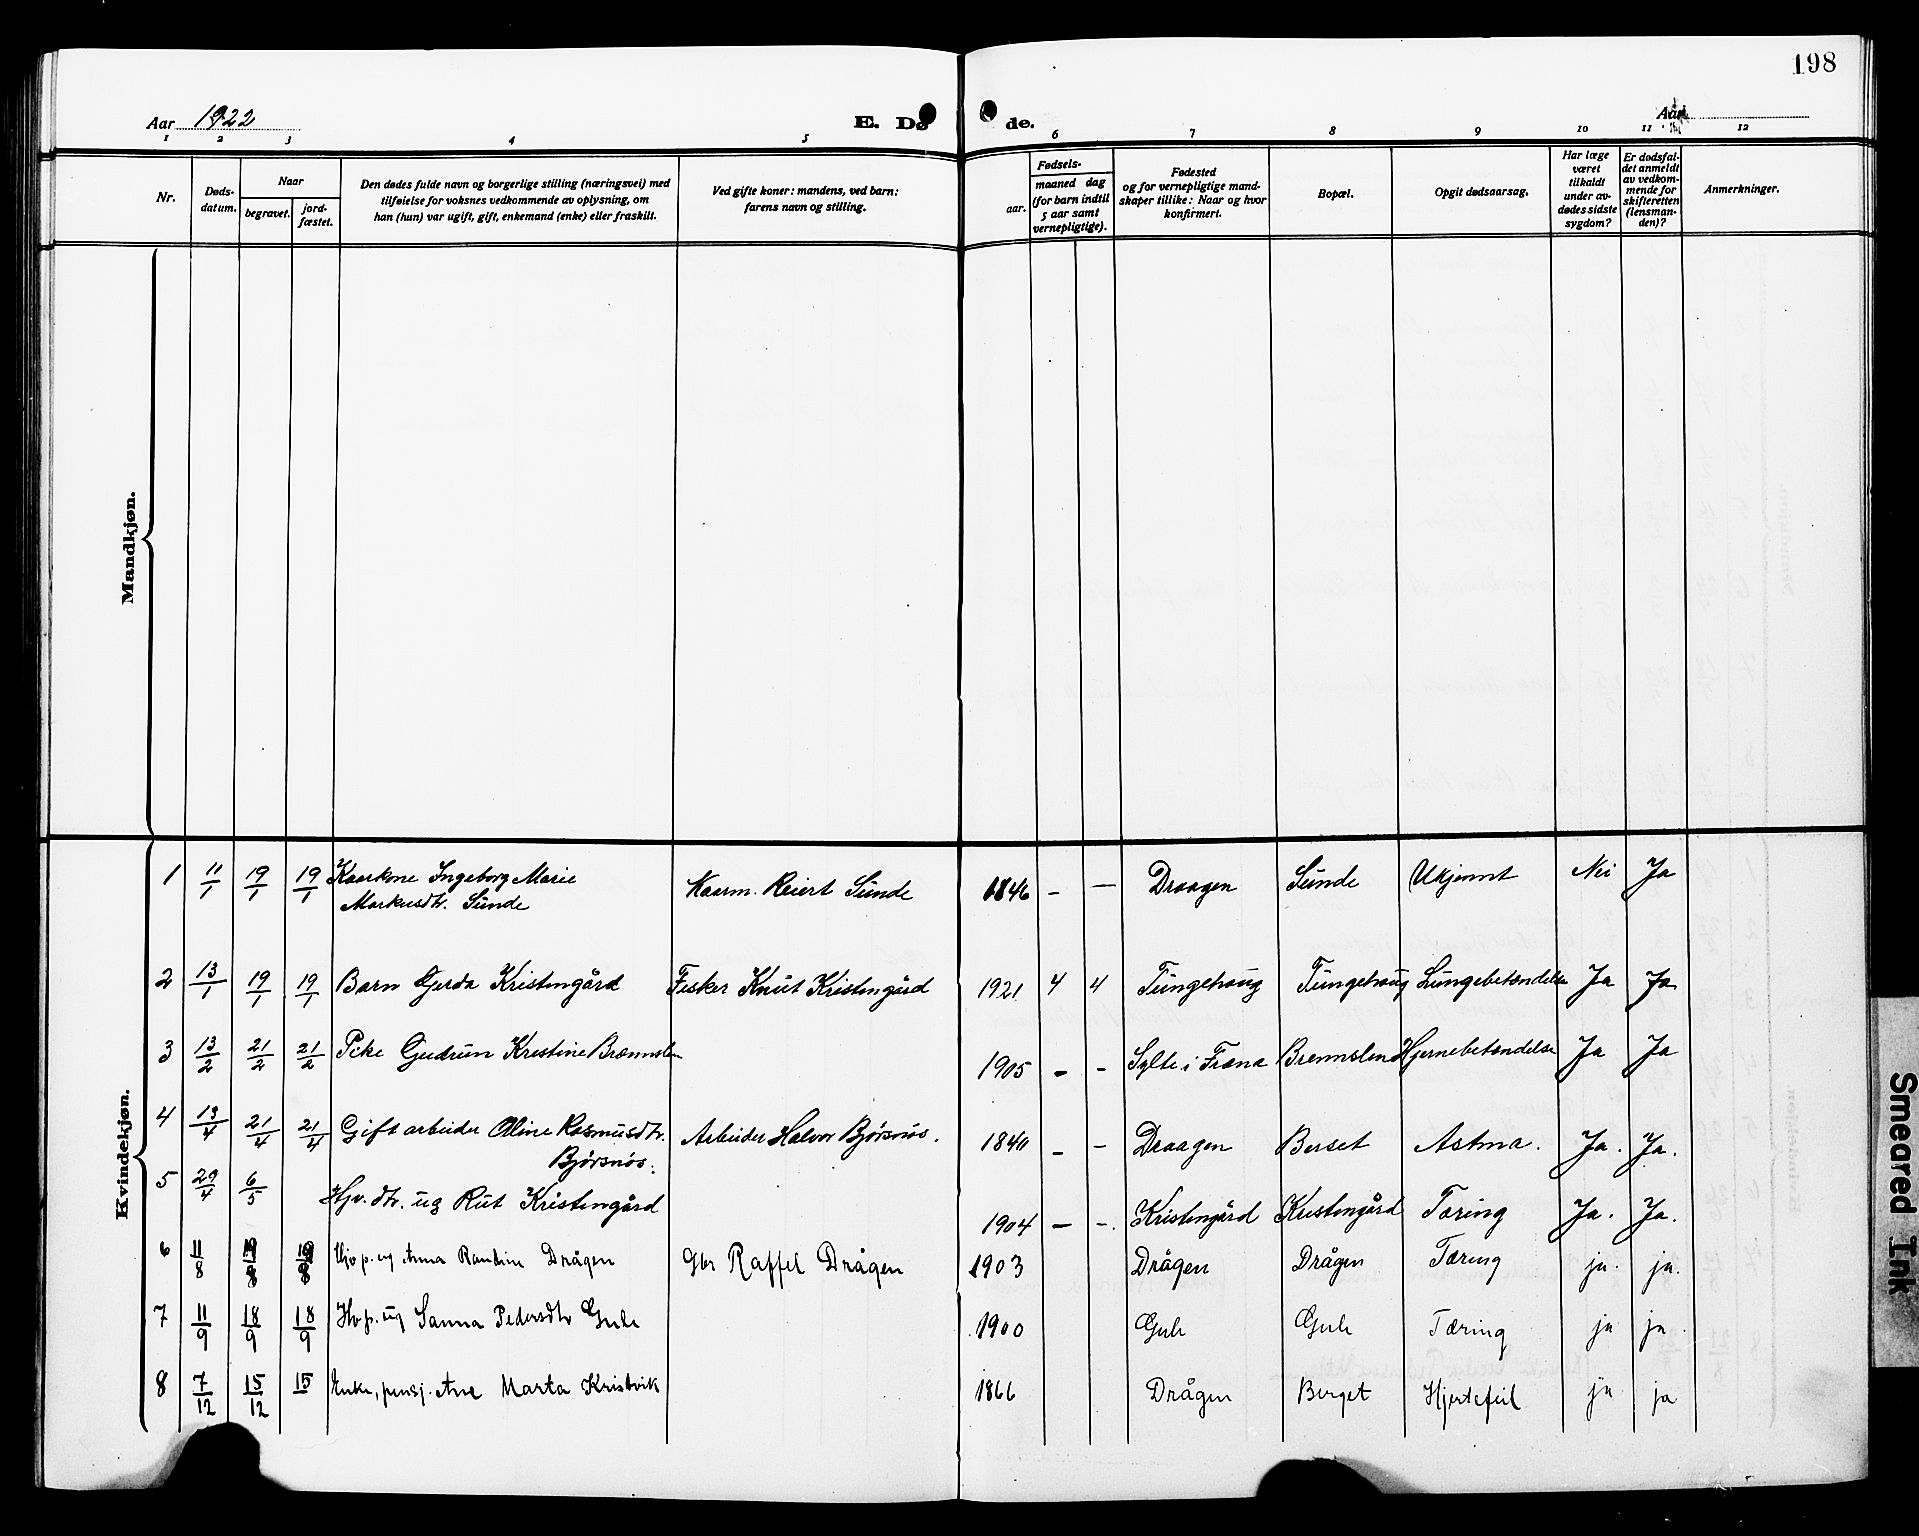 198
Aar 1922
E. Dø de.
Aar
1 2 3 4 5 6 7 8 9 10 11 12
Nr.
Døds-
datum.
Naar
begravet.
jord-
fæstet.
Den dødes fulde navn og borgerlige stilling (næringsvei) med
tilføielse for voksnes vedkommende av oplysning, om
han (hun) var ugift, gift, enkemand (enke) eller fraskilt.
Ved gifte koner: mandens, ved barn:
farens navn og stilling.
Fødsels-
aar.
maaned dag
(for barn indtil
5 aar samt
vernepligtige).
Fødested
og for vernepligtige mand-
skaper tillike: Naar og hvor
konfirmert.
Bopæl.
Opgit dødsaarsag.
Har læge
været
tilkaldt
under av-
dødes sidste
sygdom?
Er dødsfal-
det anmeldt
av vedkom-
mende for
skifteretten
(lensman-
den)?
Anmerkninger.
Mandkjøn.
Kvindekjøn.
1 11/1 19/1 19/1 Kaarkone Ingeborg Marie Kaarm. Reiert Sunde 1846 - - Draagen Sunde Ukjennt Nei Ja
Markusdtr. Sunde
2 13/1 19/1 19/1 Barn Gerda Kristengård Fisker Knut Kristengård 1921 4 4 Tungehaug Tungehaug Lungebetændelse Ja Ja
3 13/2 21/2 21/2 Pike Gudrun Kristine 1905 - - Sylte i Fræna Hjernebetændelse Ja Ja
4 13/4 21/4 21/4 Gift arbeider Oline Rasmusdtr. Arbeider Halvor Bjørsnøs. 1840 - - Draagen Berset Astma. Ja. Ja.
Bjørsnøs.
5 29/4 6/5 Hjv. dtr. ug Rut Kristengård 1904 - -. Kristengård Kristengård Tæring Ja. Ja.
6 11/8 Hjv p. ug Anna Drågen Gbr Raffel Drågen 1903 Drågen Drågen Tæring ja. ja.
7 11/9 18/9 18/9 Hv p. ug Sanna Pedersdtr Gule 1900 Gule Gule Tæring ja ja.
8 7/12 15/12 15 Enke, pensj. Ane Marta Kristvik 1866 Drågen Berget Hjertefeil ja ja
Smeared Ink